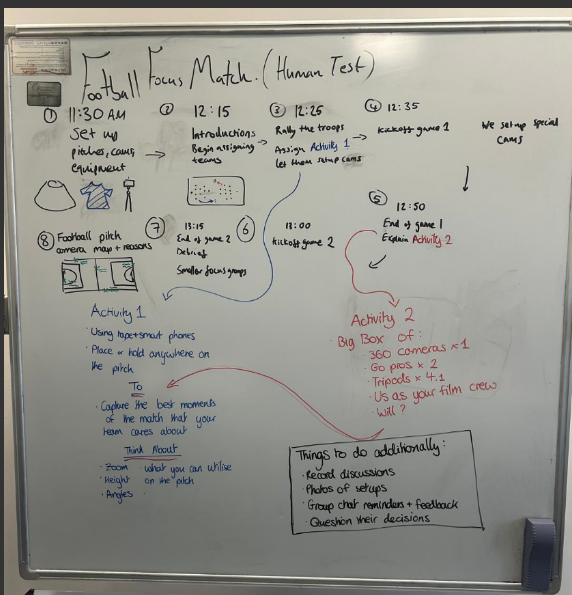 Football Focus Match. (Human Test)
① 11:30 AM
Set up
pitches, cams,
equipment
② 12:15
Introductions
Begin assigning
teams
③ 12:25
Rally the troops
Assign Activity 1
let them setup cams
④ 12:35
Kickoff game 1
We setup special
cams
⑤ 12:50
End of game 1
Explain Activity 2
⑥ 13:00
Kickoff game 2
⑦ 13:15
End of game 2
Debrief
Smaller focus groups
⑧ Football pitch
camera map + reasons
Activity 1
· Using tape+smart phones
· Place or hold anywhere on
the pitch
To
· Capture the best moments
of the match that your
team cares about
Think About
· Zoom what you can utilise
· Height on the pitch
· Angles
Activity 2
· Big Box of:
· 360 cameras x 1
· Go pros x 2
· Tripods x 4.1
· Us as your film crew
· Will?
Things to do additionally:
· Record discussions
· Photos of setups
· Group chat reminders + feedback
· Question their decisions